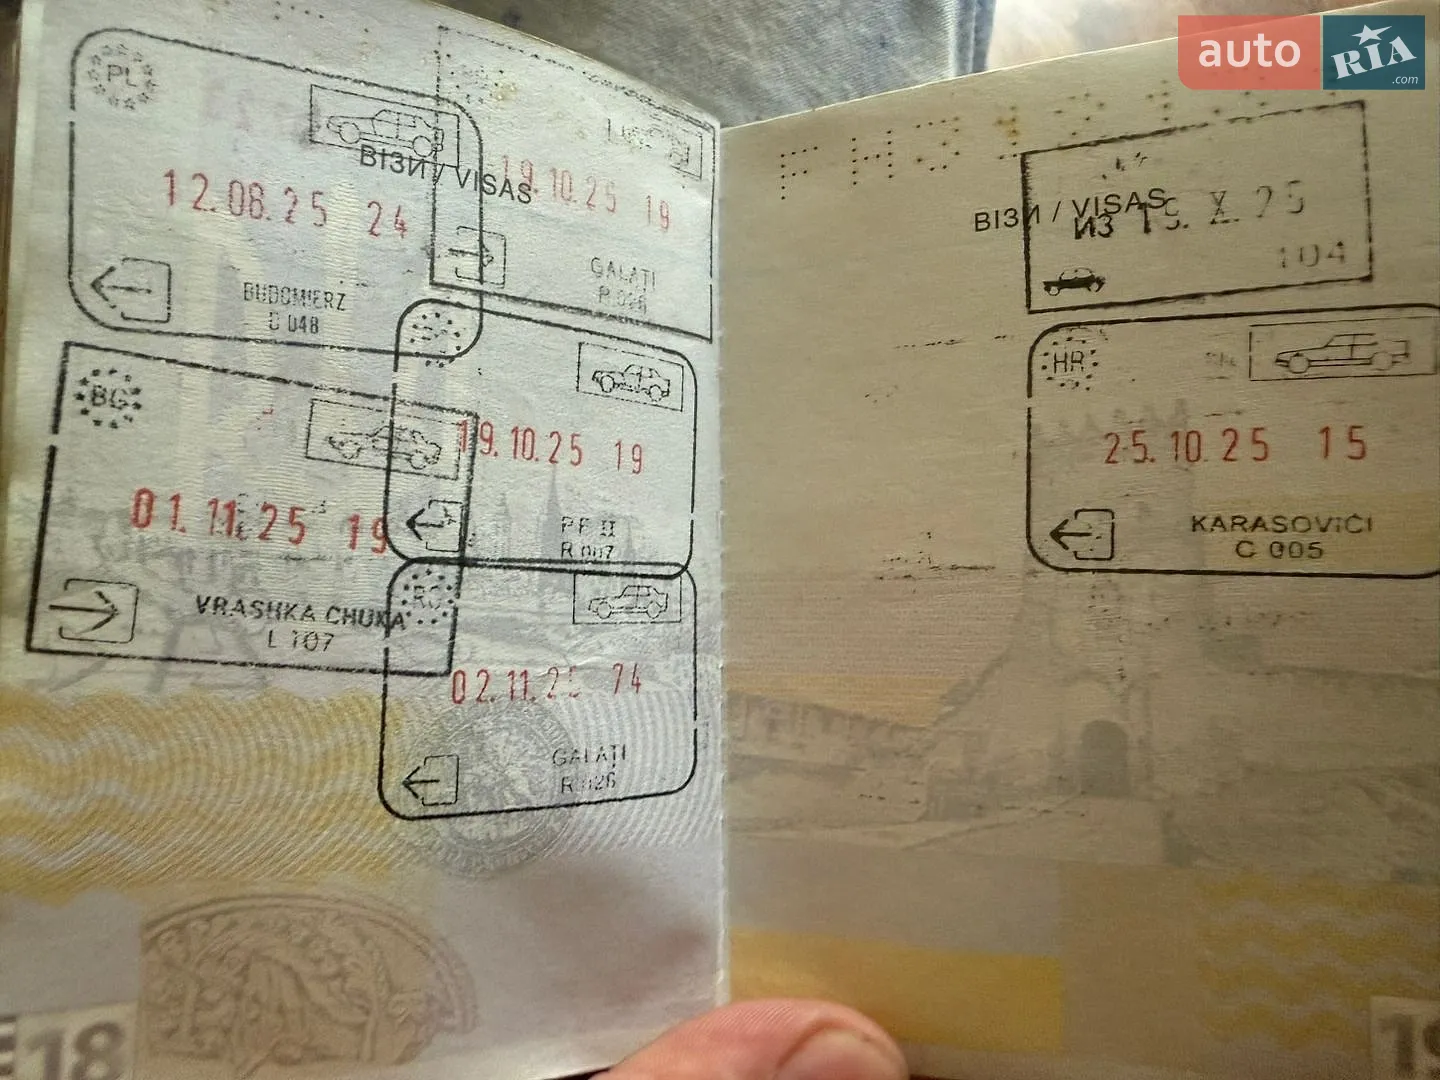 auto RIA .com
PL
ВІЗИ / VISAS
12.08.25 24
BUDOMIERZ
19.10.25 19
GALAȚI
R 026
BG
01.11.25 19
VRASHKA CHUKA
L 107
19.10.25 19
PF II
R 007
RO
02.11.25 74
GALAȚI
R 026
18
ВІЗИ / VISAS
ИЗ
X. 25
104
HR
25.10.25 15
KARASOVIĆI
C 005